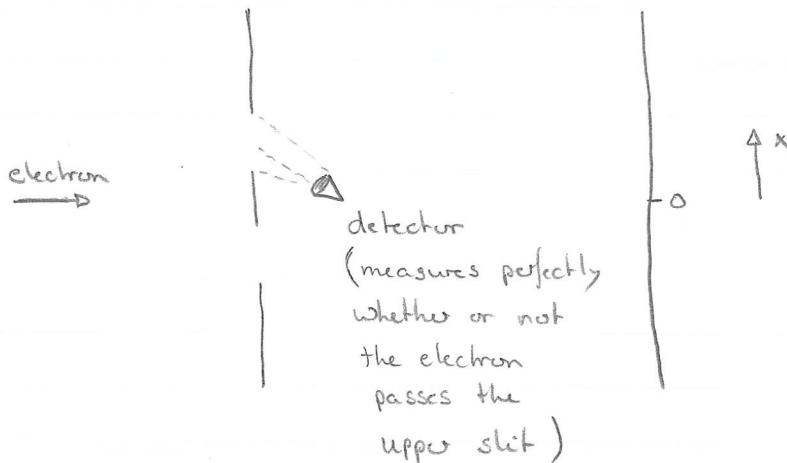 electron
x
0
detector
(measures perfectly
whether or not
the electron
passes the
upper slit)